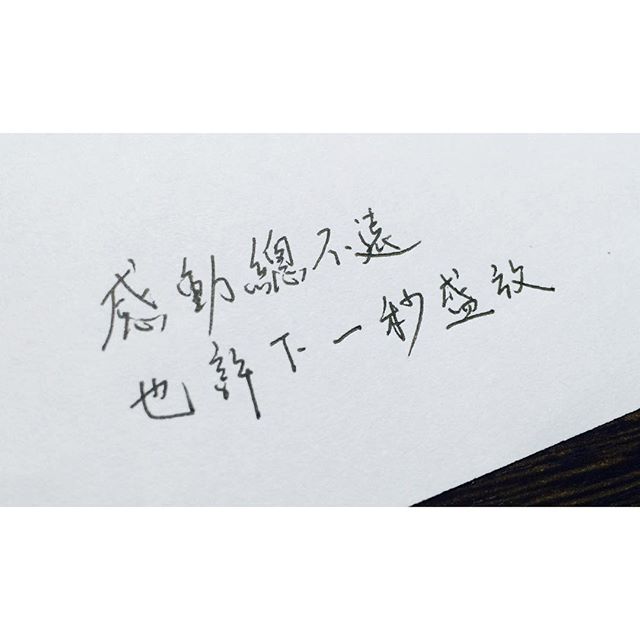 感動總不遠
也許下一秒盛放